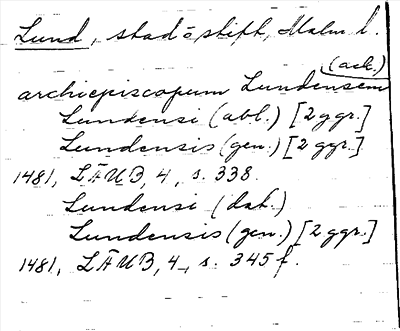 Lund, stad o stift, Malm. l.
(ack.)
archiepiscopum Lundensem
Lundensi (abl.) [2 ggr.]
Lundensis (gen.) [2 ggr.]
1481, LÄUB, 4, s. 338.
Lundensi (dat.)
Lundensis (gen.) [2 ggr.]
1481, LÄUB, 4, s. 345 f.